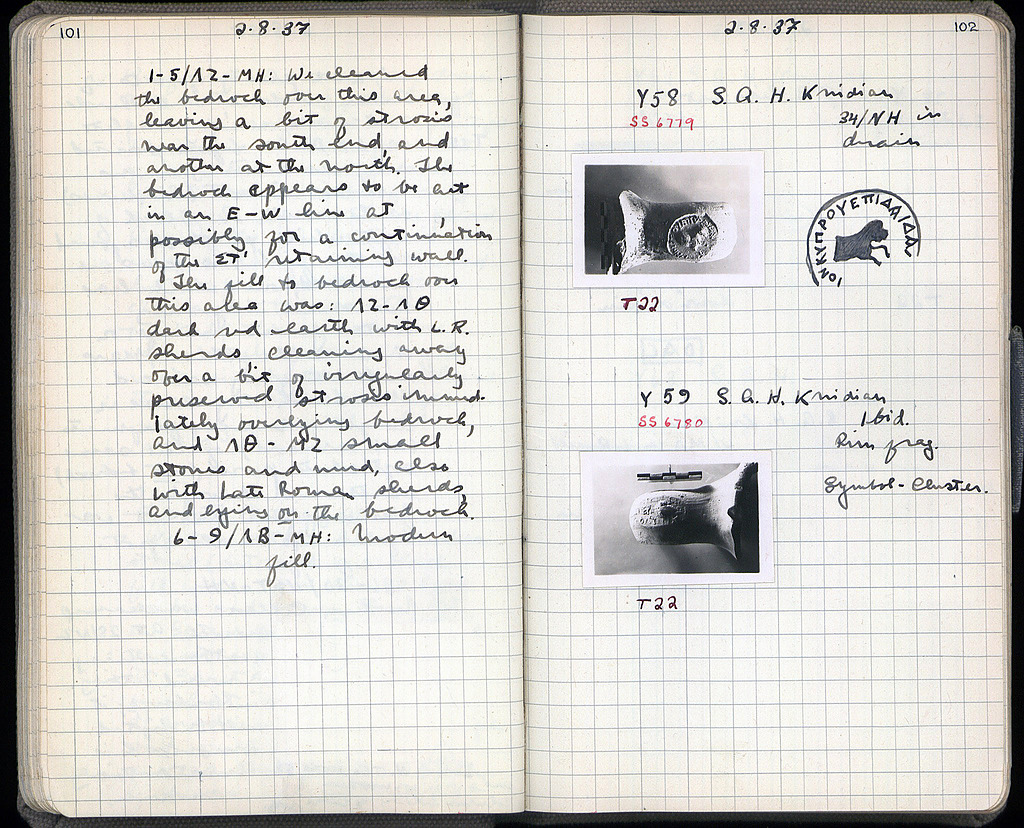 101
2·8·37
1-5/12-MH: We cleaned
the bedrock over this area,
leaving a bit of strosis
near the south end, and
another at the north. The
bedrock appears to be cut
in an E-W line at
possibly for a continuation
of the ΣΤ' retaining wall.
The fill to bedrock over
this area was: 12-1Θ
dark red earth with L.R.
sherds cleaning away
over a bit of irregularly
preserved strosis immed-
iately overlying bedrock,
and 1Θ-42 small
stones and mud, also
with Late Roman sherds,
and lying on the bedrock.
6-9/1B-MH: Modern
fill.
2·8·37
102
Y58 S.A.H. Knidian
SS 6779
34/NH in
drain
ΙΟΝΚΥΠΡΟΥΕΠΙΔΑΙΔΑ
T22
Y 59 S.A.H. Knidian
SS 6780
Ibid.
Rim frag.
Symbol-Cluster.
T22